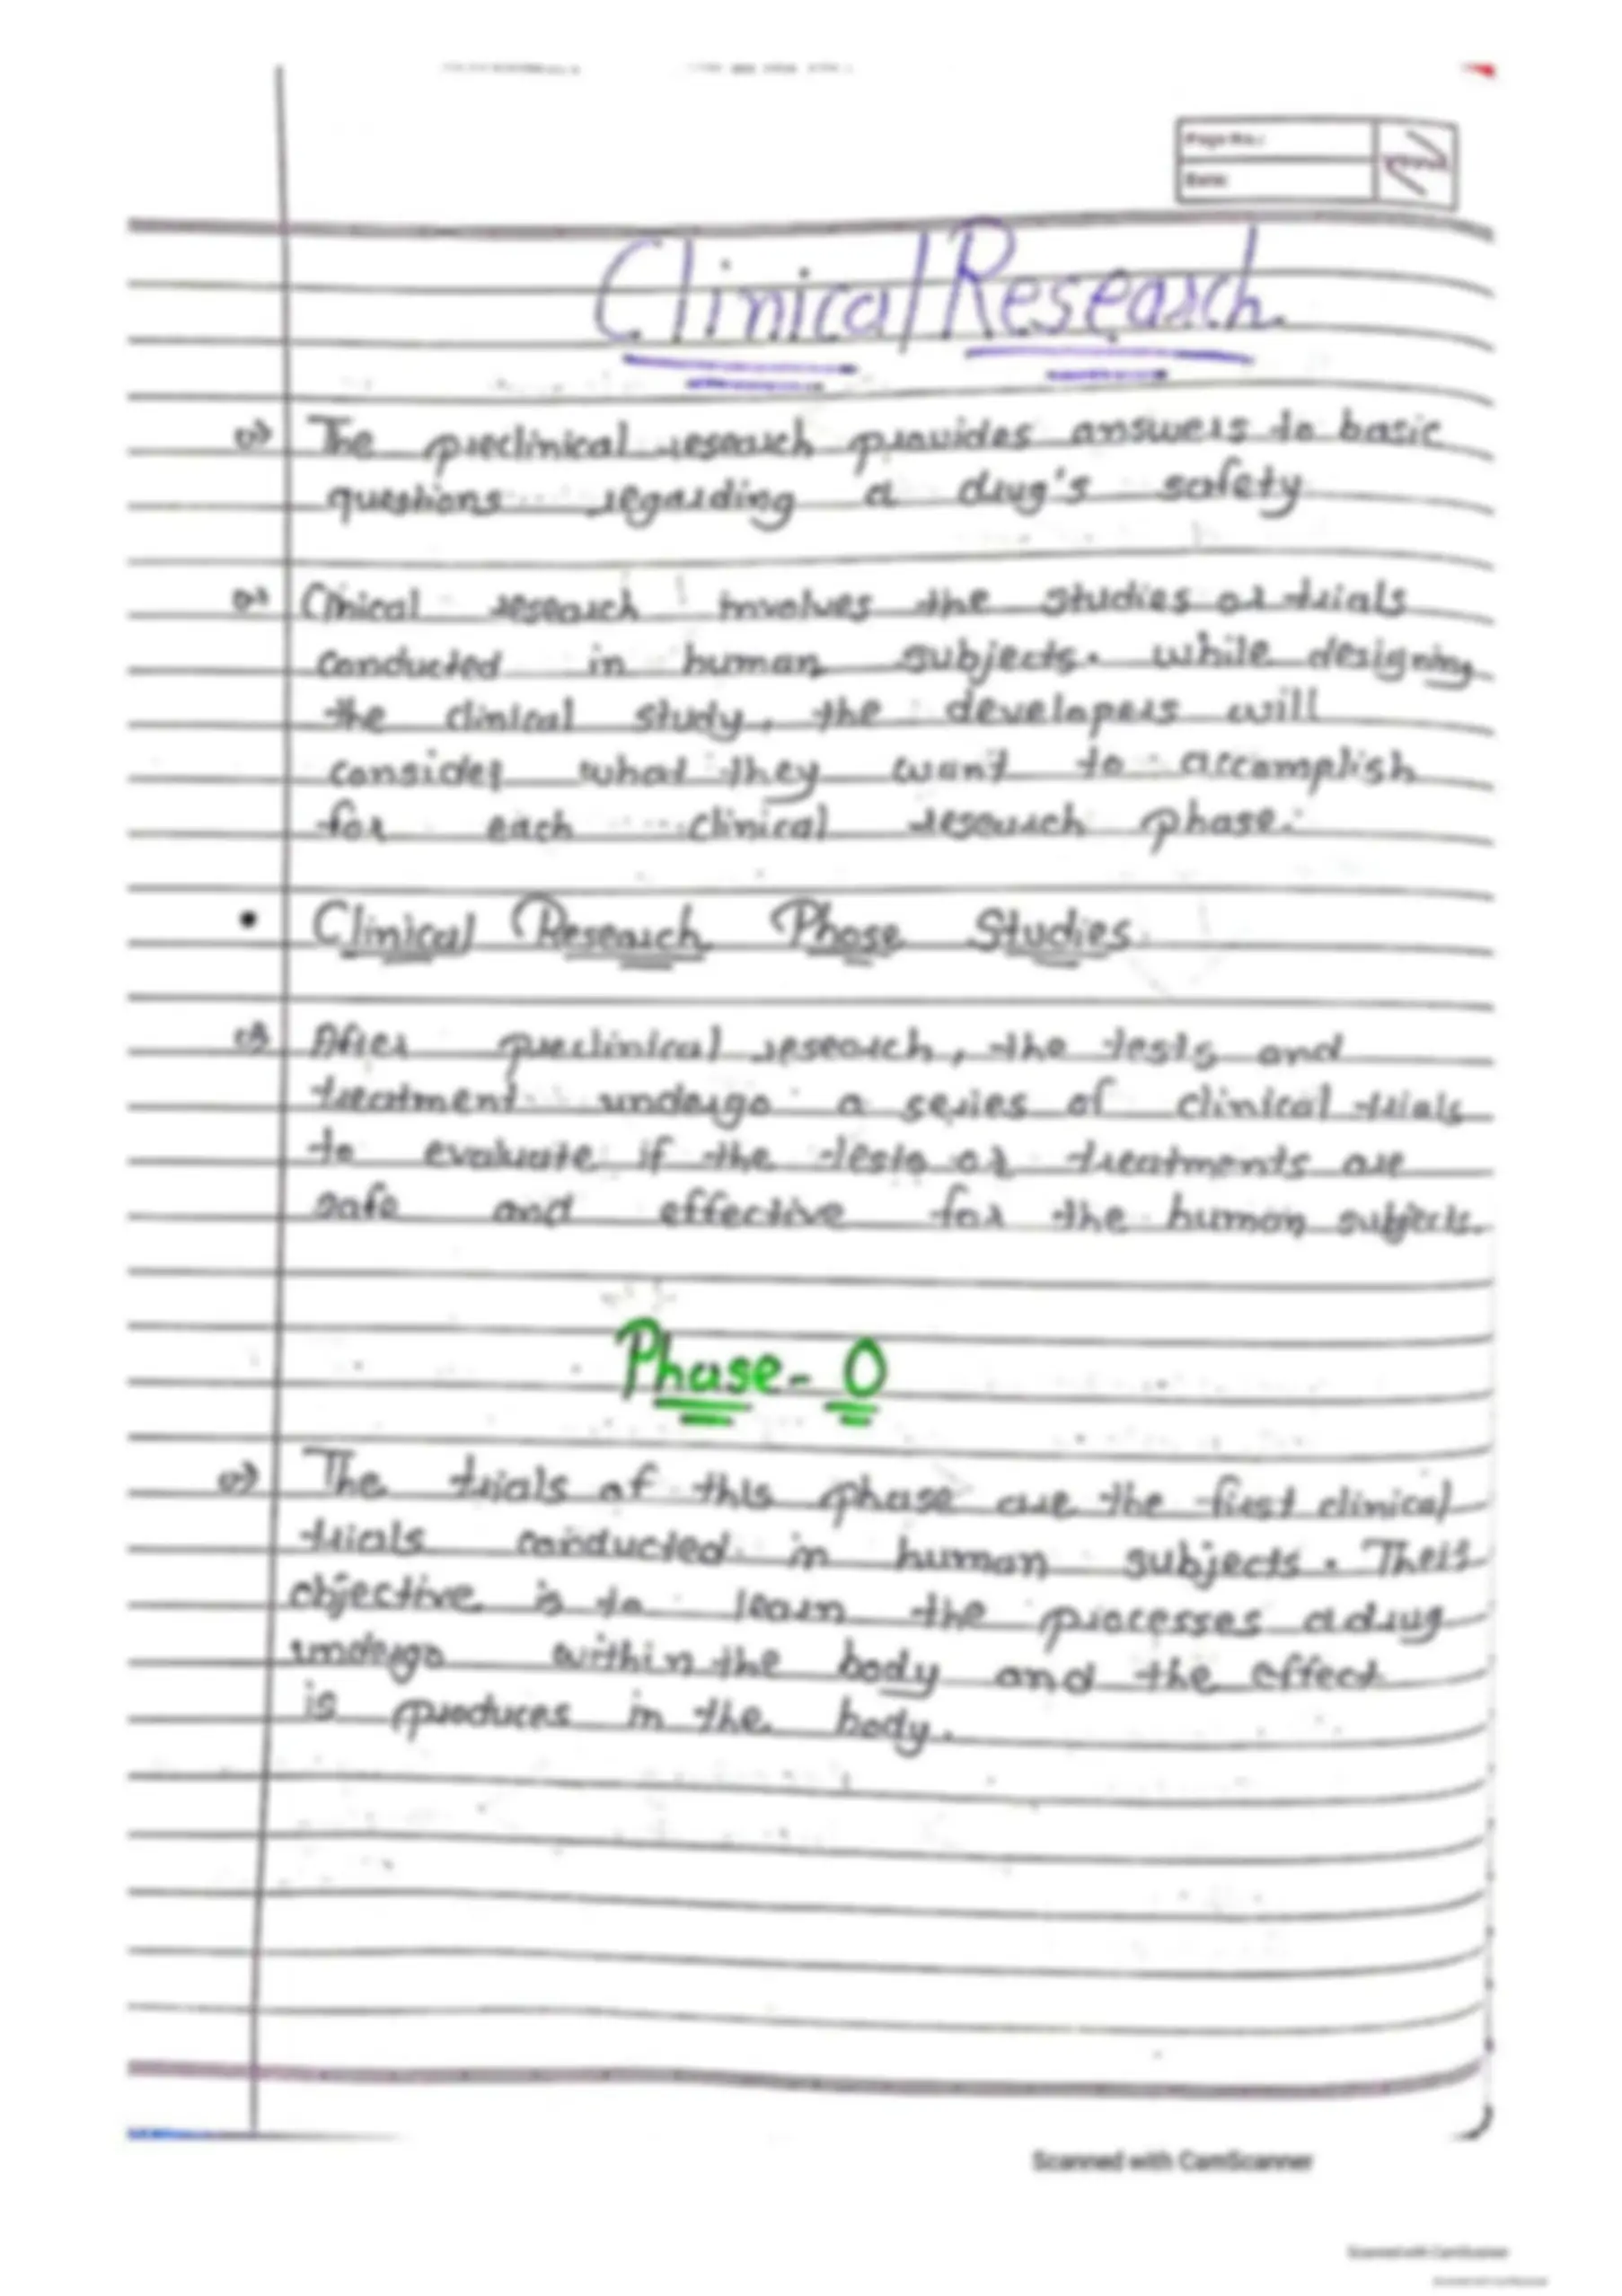 Page No.:
Date:
Clinical Research.
The preclinical research provides answers to basic
questions regarding a drug's safety
Clinical research involves the studies or trials
conducted in human subjects. while designing
the clinical study, the developers will
consider what they want to accomplish
for each clinical research phase.
• Clinical Research Phase Studies.
After preclinical research, the tests and
treatment undergo a series of clinical trials
to evaluate if the tests or treatments are
safe and effective for the human subjects.
Phase- 0
The trials of this phase are the first clinical
trials conducted in human subjects. Their
objective is to learn the processes a drug
undergo within the body and the effect
is produces in the body.
Scanned with CamScanner
Scanned with CamScanner
Scanned with CamScanner